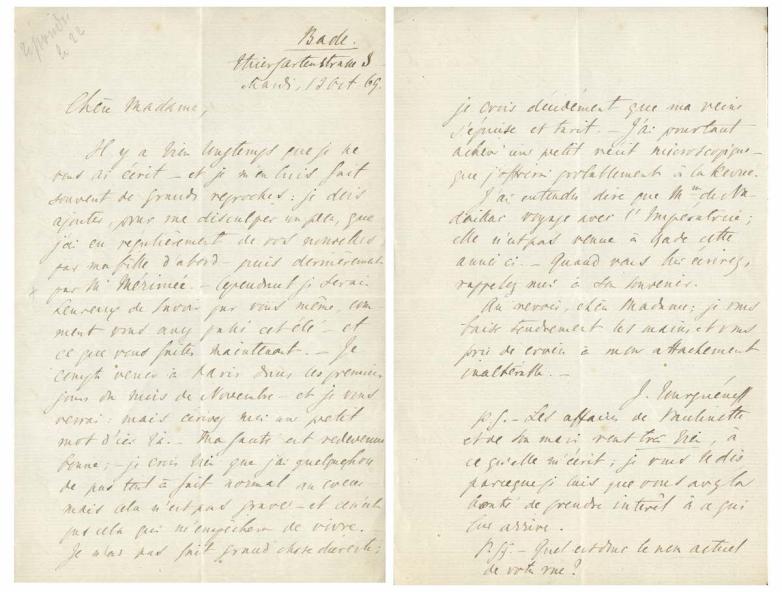 répondu
le 22
Bade.
Thiergartenstrasse 3
Mardi, 12 Oct 69.
Chère Madame,
Il y a bien longtemps que je ne
vous ai écrit – et je m'en suis fait
souvent de grands reproches : je dois
ajouter, pour me disculper un peu, que
j'ai eu régulièrement de vos nouvelles
par ma fille d'abord – puis dernièrement
par Mr Mérimée. – Cependant je serais
heureux de savoir par vous même, com-
ment vous avez passé cet été – et
ce que vous faites maintenant. – Je
compte venir à Paris dans les premiers
jours du mois de Novembre – et je vous
verrai : mais écrivez moi un petit
mot d'ici là. – Ma santé est redevenue
bonne ; – je crois bien que j'ai quelque chose
de pas tout à fait normal au coeur
mais cela n'est pas grave – et ce n'est
pas cela qui m'empêchera de vivre.
Je n'ai pas fait grand chose
je crois décidément que ma veine
s'épuise et tarit. – J'ai pourtant
achevé un petit récit microscopique
que j'offrirai probablement à la Revue.
J'ai entendu dire que Mme de Na-
daillac voyage avec l'Impératrice ;
elle n'est pas venue à Bade cette
année ci. – Quand vous lui écrirez,
rappelez moi à son souvenir.
Au revoir, chère Madame ; je vous
baise tendrement les mains et vous
prie de croire à mon attachement
inaltérable. –
J. Tourguéneff
P.S. – Les affaires de Paulinette
et de son mari vont très bien, à
ce qu'elle m'écrit ; je vous le dis
parceque je sais que vous avez la
bonté de prendre intérêt à ce qui
leur arrive.
P.S. – Quel est donc le nom actuel
de votre rue ?